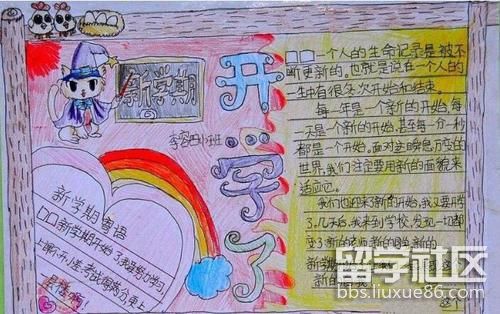 新学期
开
学
了
一个人的生命记录是被不
断更新的。也就是说在一个人的
一生中有很多次开始和结束。
每一年是一个新的开始,每
一天是个新的开始,甚至每一分一秒
都是个开始。面对这瞬息万变的
世界,我们注定要用新的面貌来
适应它。
我们也迎来了新的开始,我又要开学
了。几天后,我来到学校,发现一切都
变了新的老师新的同学新的
新学期寄语
新学期开始了我要努力学习
上课不开小差,考试得满分更上
留学社区
bbs.liuxue86.com